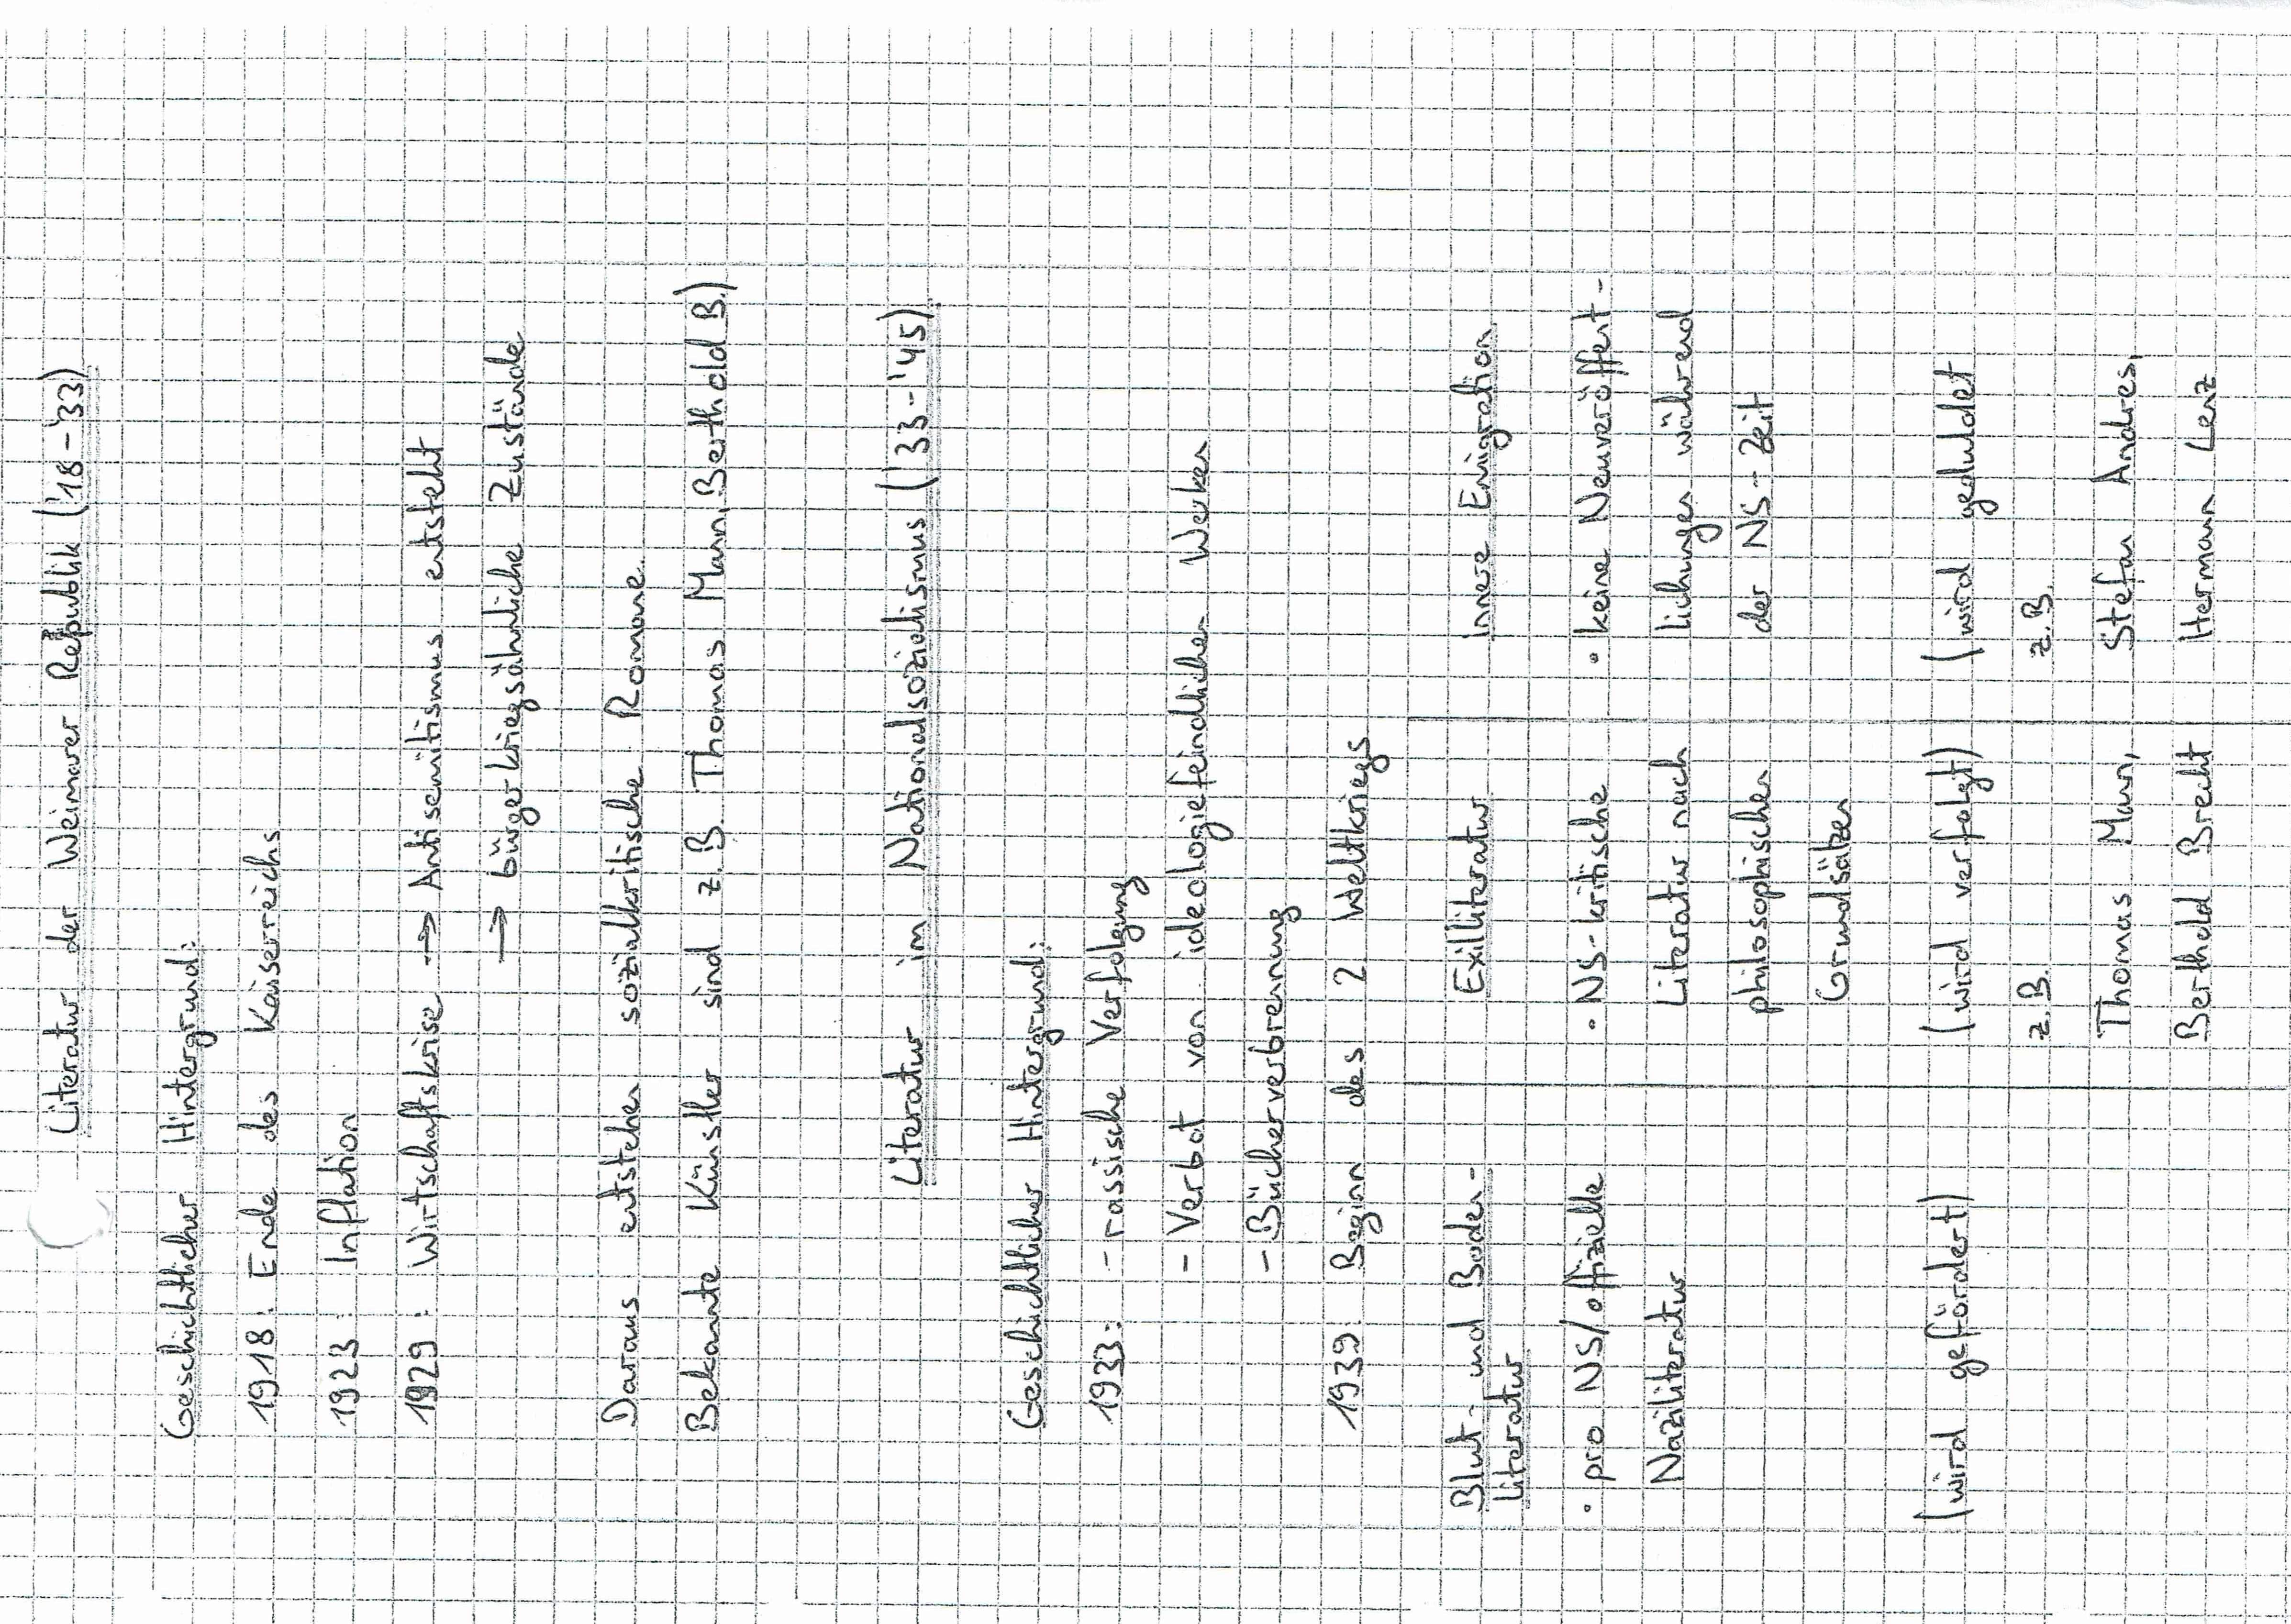 Literatur der Weimarer Republik ('18-'33)
Geschichtlicher Hintergrund:
1918: Ende des Kaiserreichs
1923: Inflation
1929: Wirtschaftskrise → Antisemitismus entsteht
→ bürgerkriegsähnliche Zustände
Daraus entstehen sozialkritische Romane.
Bekannte Künstler sind z.B. Thomas Mann, Berthold B.)
Literatur im Nationalsozialismus ('33-'45)
Geschichtlicher Hintergrund:
1933: - rassische Verfolgung
- Verbot von ideologiefeindlichen Werken
- Bücherverbrennung
1939: Beginn des 2 Weltkriegs
Blut- und Boden-
Literatur
• pro NS/offizielle
Naziliteratur
(wird gefördert)
Exilliteratur
• NS-kritische
Literatur nach
philosophischen
Grundsätzen
(wird verfolgt)
z.B.
Thomas Mann,
Berthold Brecht
innere Emigration
• keine Neuveröffent-
lichungen während
der NS-Zeit
(wird geduldet
z.B.
Stefan Andres,
Hermann Lenz